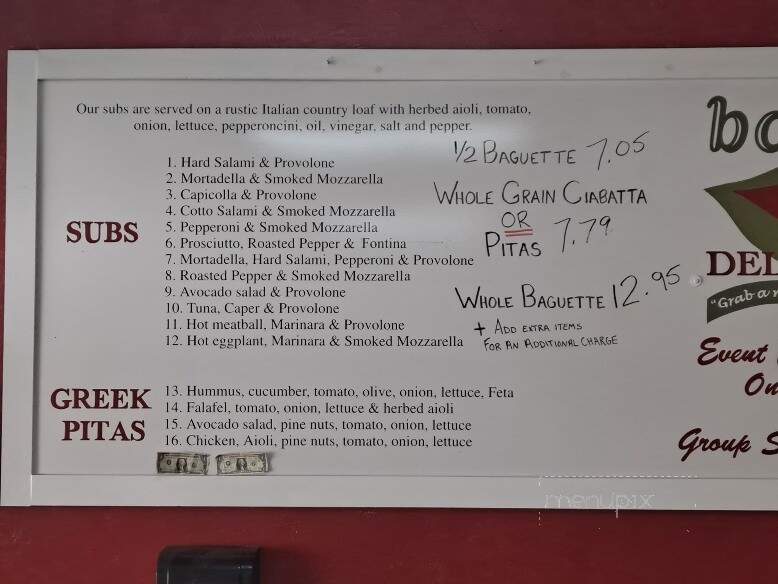 Our subs are served on a rustic Italian country loaf with herbed aioli, tomato,
onion, lettuce, pepperoncini, oil, vinegar, salt and pepper.
SUBS
1. Hard Salami & Provolone
2. Mortadella & Smoked Mozzarella
3. Capicolla & Provolone
4. Cotto Salami & Smoked Mozzarella
5. Pepperoni & Smoked Mozzarella
6. Prosciutto, Roasted Pepper & Fontina
7. Mortadella, Hard Salami, Pepperoni & Provolone
8. Roasted Pepper & Smoked Mozzarella
9. Avocado salad & Provolone
10. Tuna, Caper & Provolone
11. Hot meatball, Marinara & Provolone
12. Hot eggplant, Marinara & Smoked Mozzarella
1/2 BAGUETTE 7.05
WHOLE GRAIN CIABATTA
OR
PITAS 7.79
WHOLE BAGUETTE 12.95
+ ADD EXTRA ITEMS
FOR AN ADDITIONAL CHARGE
GREEK
PITAS
13. Hummus, cucumber, tomato, olive, onion, lettuce, Feta
14. Falafel, tomato, onion, lettuce & herbed aioli
15. Avocado salad, pine nuts, tomato, onion, lettuce
16. Chicken, Aioli, pine nuts, tomato, onion, lettuce
bo
DEL
"Grab a
Event
On
Group S
menupix